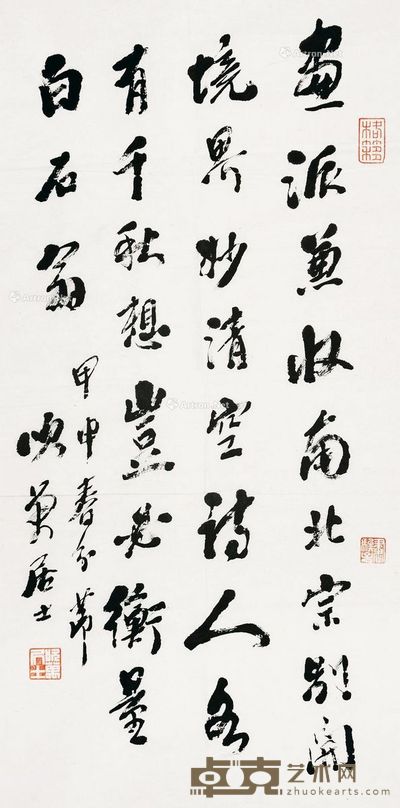 畫派兼收南北宗别開
境界妙清空詩人各
有千秋想豈必衡量
白石翁
甲申春分節
居士
卓克艺术网
zhuokearts.com